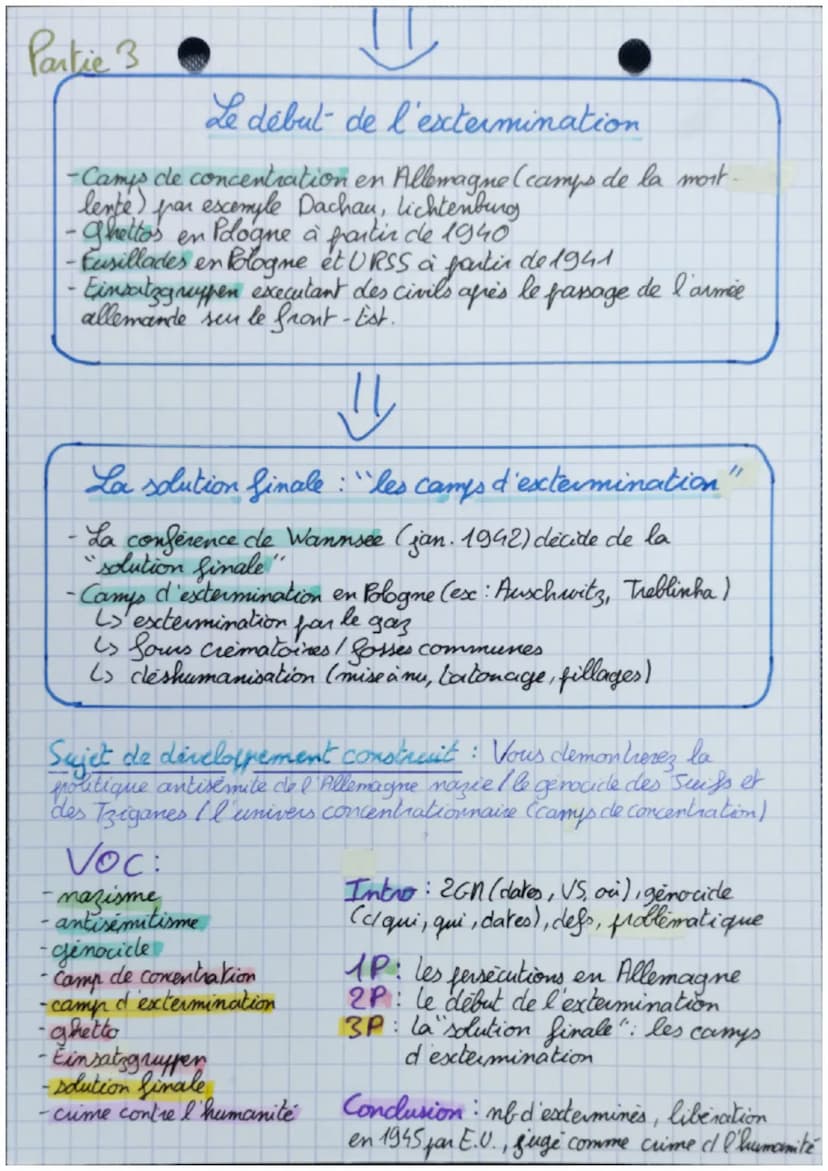 Partie 3
Le début de l'extermination
- Camps de concentration en Allemagne (camps de la mort
lente) par exemple Dachau, Lichtenburg
- Ghettos en Pologne à partir de 1940
- Fusillades en Pologne et URSS à partir de 1941
- Einsatzgruppen executant des civils après le passage de l'armée
allemande sur le front-Est.
La solution finale : "les camps d'extermination"
- La conférence de Wannsee (jan. 1942) décide de la
"solution finale"
- Camps d'extermination en Pologne (ex : Auschwitz, Treblinka)
↳ extermination par le gaz
↳ fours crématoires / fosses communes
↳ déshumanisation (mise à nu, tatouage, pillages)
Sujet de développement construit : Vous demontrerez la
politique antisémite de l'Allemagne nazie / le génocide des Juifs et
des Tziganes / l'univers concentrationnaire (camps de concentration)
VOC :
- nazisme
- antisémitisme
- génocide
- camp de concentration
- camp d'extermination
- ghetto
- Einsatzgruppen
- solution finale
- crime contre l'humanité
Intro : 2GM (dates, VS, où), génocide
(c/ qui, qui, dates), defs, problématique
1P : les persécutions en Allemagne
2P : le début de l'extermination
3P : la "solution finale" : les camps
d'extermination
Conclusion : nb d'exterminés, libération
en 1945 par E.U., jugé comme crime c/ l'humanité